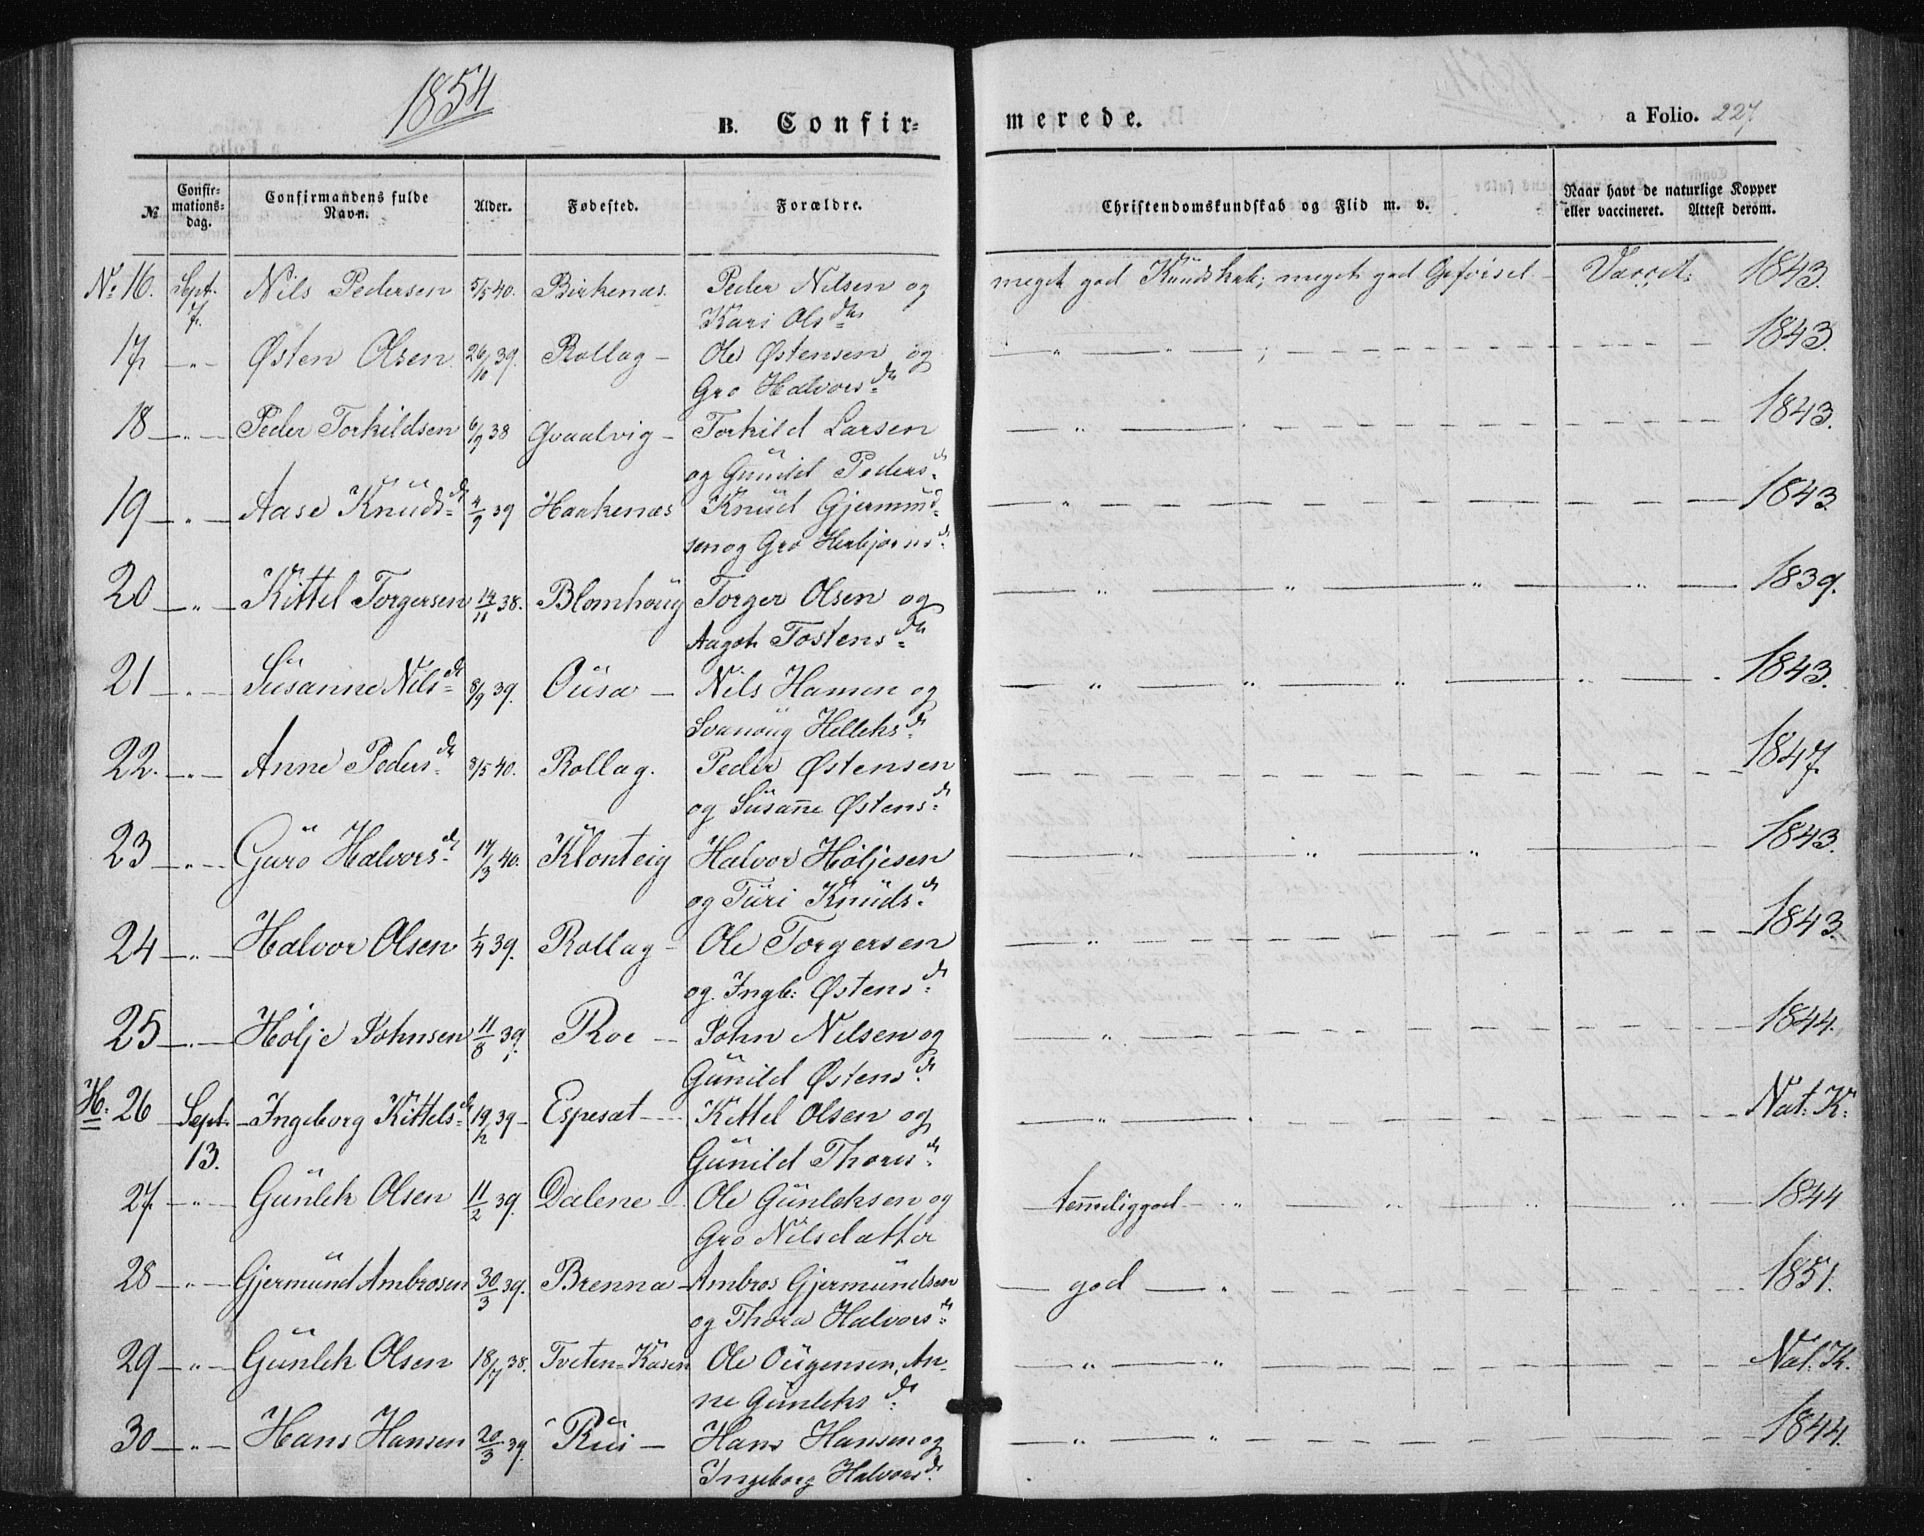 1854
B. Confir- merede. a Folio. 227
№ Confir-mations-dag. Confirmandens fulde Navn. Alder. Fødested. Forældre. Christendomskundskab og Flid m. v. Naar havt de naturlige Kopper eller vaccineret. Attest derom.
No 16. Sept. 7. Nils Pedersen 5/5 40. Birkenæs. Peder Nilsen og meget god Kundskab; meget god Opførsel – Vaccct: 1843.
Kari Olsdtr
17 – " – Østen Olsen 26/10 39. Rollag – Ole Østensen og " " ; 1843.
Gro Halvorsdr
18 – " – Peder Torkildsen 6/9 38 Gvaalvig – Torkild Larsen " 1843.
og Gunild Pedersd
19 – " – Aase Knudsdr 4/9 39 Haakenæs Knud Gjermund- " 1843.
sen og Gro Herbjørnsd
20 – " – Kittel Torgersen 14/11 38. Blomhoug Torger Olsen og " " " " 1839.
Aagot Tostensdr
21 – " – Susanne Nilsdr 8/9 39. Ousa – Nils Hansen og " " " " 1843.
Svanoug Helleksdr
22. – " – Anne Pedersdr 3/5 40. Rollag. Peder Østensen 1847.
og Susañe Østensdr
23 – " – Guro Halvorsdr 14/3 40. Klonteig Halvor Holjesen " " " 1843.
og Turi Knudsdr
24 – " – Halvor Olsen 1/4 39. Rollag – Ole Torgersen " 1843.
og Ingb: Østensdr
25 – " – Holje Johnsen 11/8 39. Roe – John Nilsen og " 1844.
Gunild Østensdr
H: 26 Sept. 13. Ingeborg Kittelsdr 19/12 39 – Espesat – Kittel Olsen og " Nat: K:
Gunild Thoresdr
27 – " – Gunlek Olsen 11/2 39. Dalene – Ole Gunleksen og tem̄eliggod – " " " " 1844
Gro Nilsdatter
28 – " – Gjermund Ambrosen 30/3 39. Brenna – Ambros Gjermundsen god – " 1851.
og Thora Halvorsdr
29 – " – Gunlek Olsen 18/4 38. Tveten=Kasen Ole Ougensen, An- " " Nat. K.
ne Gunleksdr
30 – " – Hans Hansen 20/3 39. Rui – Hans Hansen og " " 1844.
Ingeborg Halvorsd.